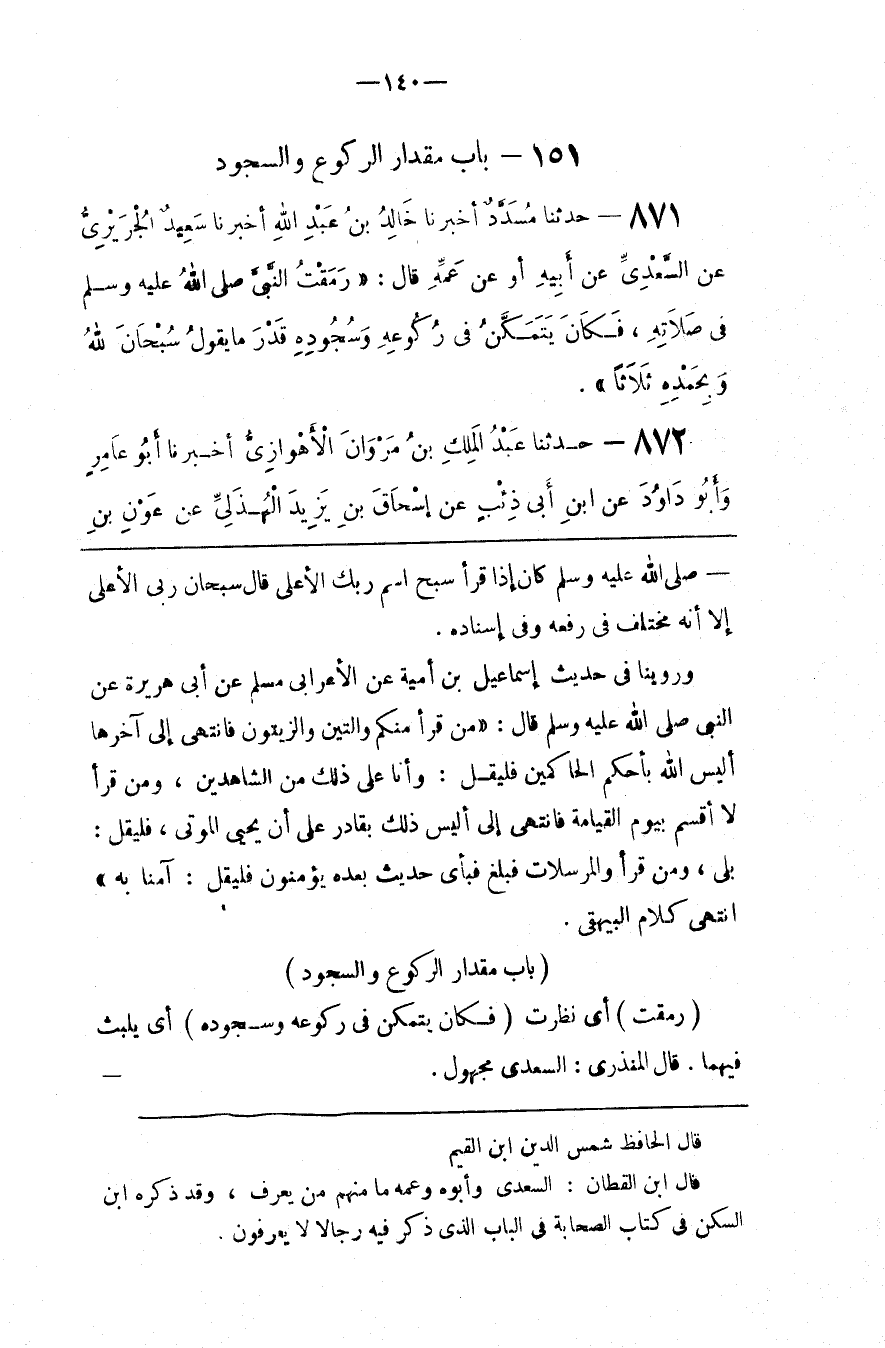 —١٤٠—
١٥١ — باب مقدار الركوع والسجود
٨٧١ — حدثنا مُسَدَّدٌ أخبرنا خَالِدُ بنُ عَبْدِ اللهِ أخبرنا سَعِيدٌ الْجُرَيْرِيُّ
عن السَّعْدِيِّ عن أَبِيهِ أو عن عَمِّهِ قال : « رَمَقْتُ النَّبِيَّ صلى اللهُ عليه وسلم
فى صَلَاتِهِ ، فَكَانَ يَتَمَكَّنُ فى رُكُوعِهِ وَسُجُودِهِ قَدْرَ مايقولُ سُبْحَانَ للهُ
وَبِحَمْدِهِ ثَلَاثاً » .
٨٧٢ — حدثنا عَبْدُ المَلِكِ بنُ مَرْوَانَ الْأَهْوَازِيُّ أخبرنا أَبُو عَامِرٍ
وَأَبُو دَاوُدَ عن ابنِ أَبى ذِئْبٍ عن إِسْحَاقَ بنِ يَزِيدَ الْهُذَلِيِّ عن عَوْنِ بنِ
— صلى الله عليه وسلم كان إذا قرأ سبح اسم ربك الأعلى قال سبحان ربى الأعلى
إلا أنه مختلف فى رفعه وفى إسناده .
وروينا فى حديث إسماعيل بن أمية عن الأعرابى مسلم عن أبى هريرة عن
النبى صلى الله عليه وسلم قال : «من قرأ منكم والتين والزيتون فانتهى إلى آخرها
أليس الله بأحكم الحاكمين فليقل : وأنا على ذلك من الشاهدين ، ومن قرأ
لا أقسم بيوم القيامة فانتهى إلى أليس ذلك بقادر على أن يحيى الموتى ، فليقل :
بلى ، ومن قرأ والمرسلات فبلغ فبأى حديث بعده يؤمنون فليقل : آمنا به »
انتهى كلام البيهقى .
( باب مقدار الركوع والسجود )
( رمقت ) أى نظرت ( فكان يتمكن فى ركوعه وسجوده ) أى يلبث
فيهما . قال المنذرى : السعدى مجهول . —
قال الحافظ شمس الدين ابن القيم
قال ابن القطان : السعدى وأبوه وعمه ما منهم من يعرف ، وقد ذكره ابن
السكن فى كتاب الصحابة فى الباب الذى ذكر فيه رجالا لا يعرفون .